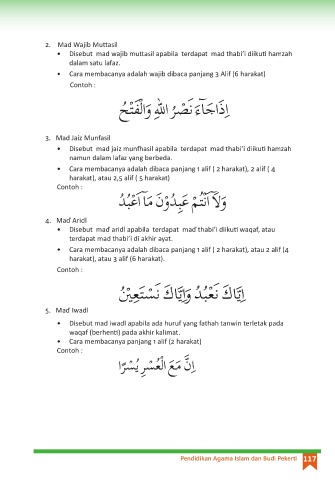 2. Mad Wajib Muttasil
• Disebut mad wajib muttasil apabila terdapat mad thabi'i diikuti hamzah
dalam satu lafaz.
• Cara membacanya adalah wajib dibaca panjang 3 Alif (6 harakat)
Contoh :
اِذَاجَآءَ نَصْرُ اللّٰهِ وَالْفَتْحُ
3. Mad Jaiz Munfasil
• Disebut mad jaiz munfhasil apabila terdapat mad thabi'i diikuti hamzah
namun dalam lafaz yang berbeda.
• Cara membacanya adalah dibaca panjang 1 alif ( 2 harakat), 2 alif ( 4
harakat), atau 2,5 alif ( 5 harakat)
Contoh :
وَلَآ اَنْتُمْ عٰبِدُوْنَ مَآ اَعْبُدُ
4. Mad Aridl
• Disebut mad aridl apabila terdapat mad thabi'i diikuti waqaf, atau
terdapat mad thabi'i di akhir ayat.
• Cara membacanya adalah dibaca panjang 1 alif ( 2 harakat), atau 2 alif (4
harakat), atau 3 alif (6 harakat).
Contoh :
اِيَّاكَ نَعْبُدُ وَاِيَّاكَ نَسْتَعِيْنُ
5. Mad Iwadl
• Disebut mad iwadl apabila ada huruf yang fathah tanwin terletak pada
waqaf (berhenti) pada akhir kalimat.
• Cara membacanya panjang 1 alif (2 harakat)
Contoh :
اِنَّ مَعَ الْعُسْرِ يُسْرًا
Pendidikan Agama Islam dan Budi Pekerti 117